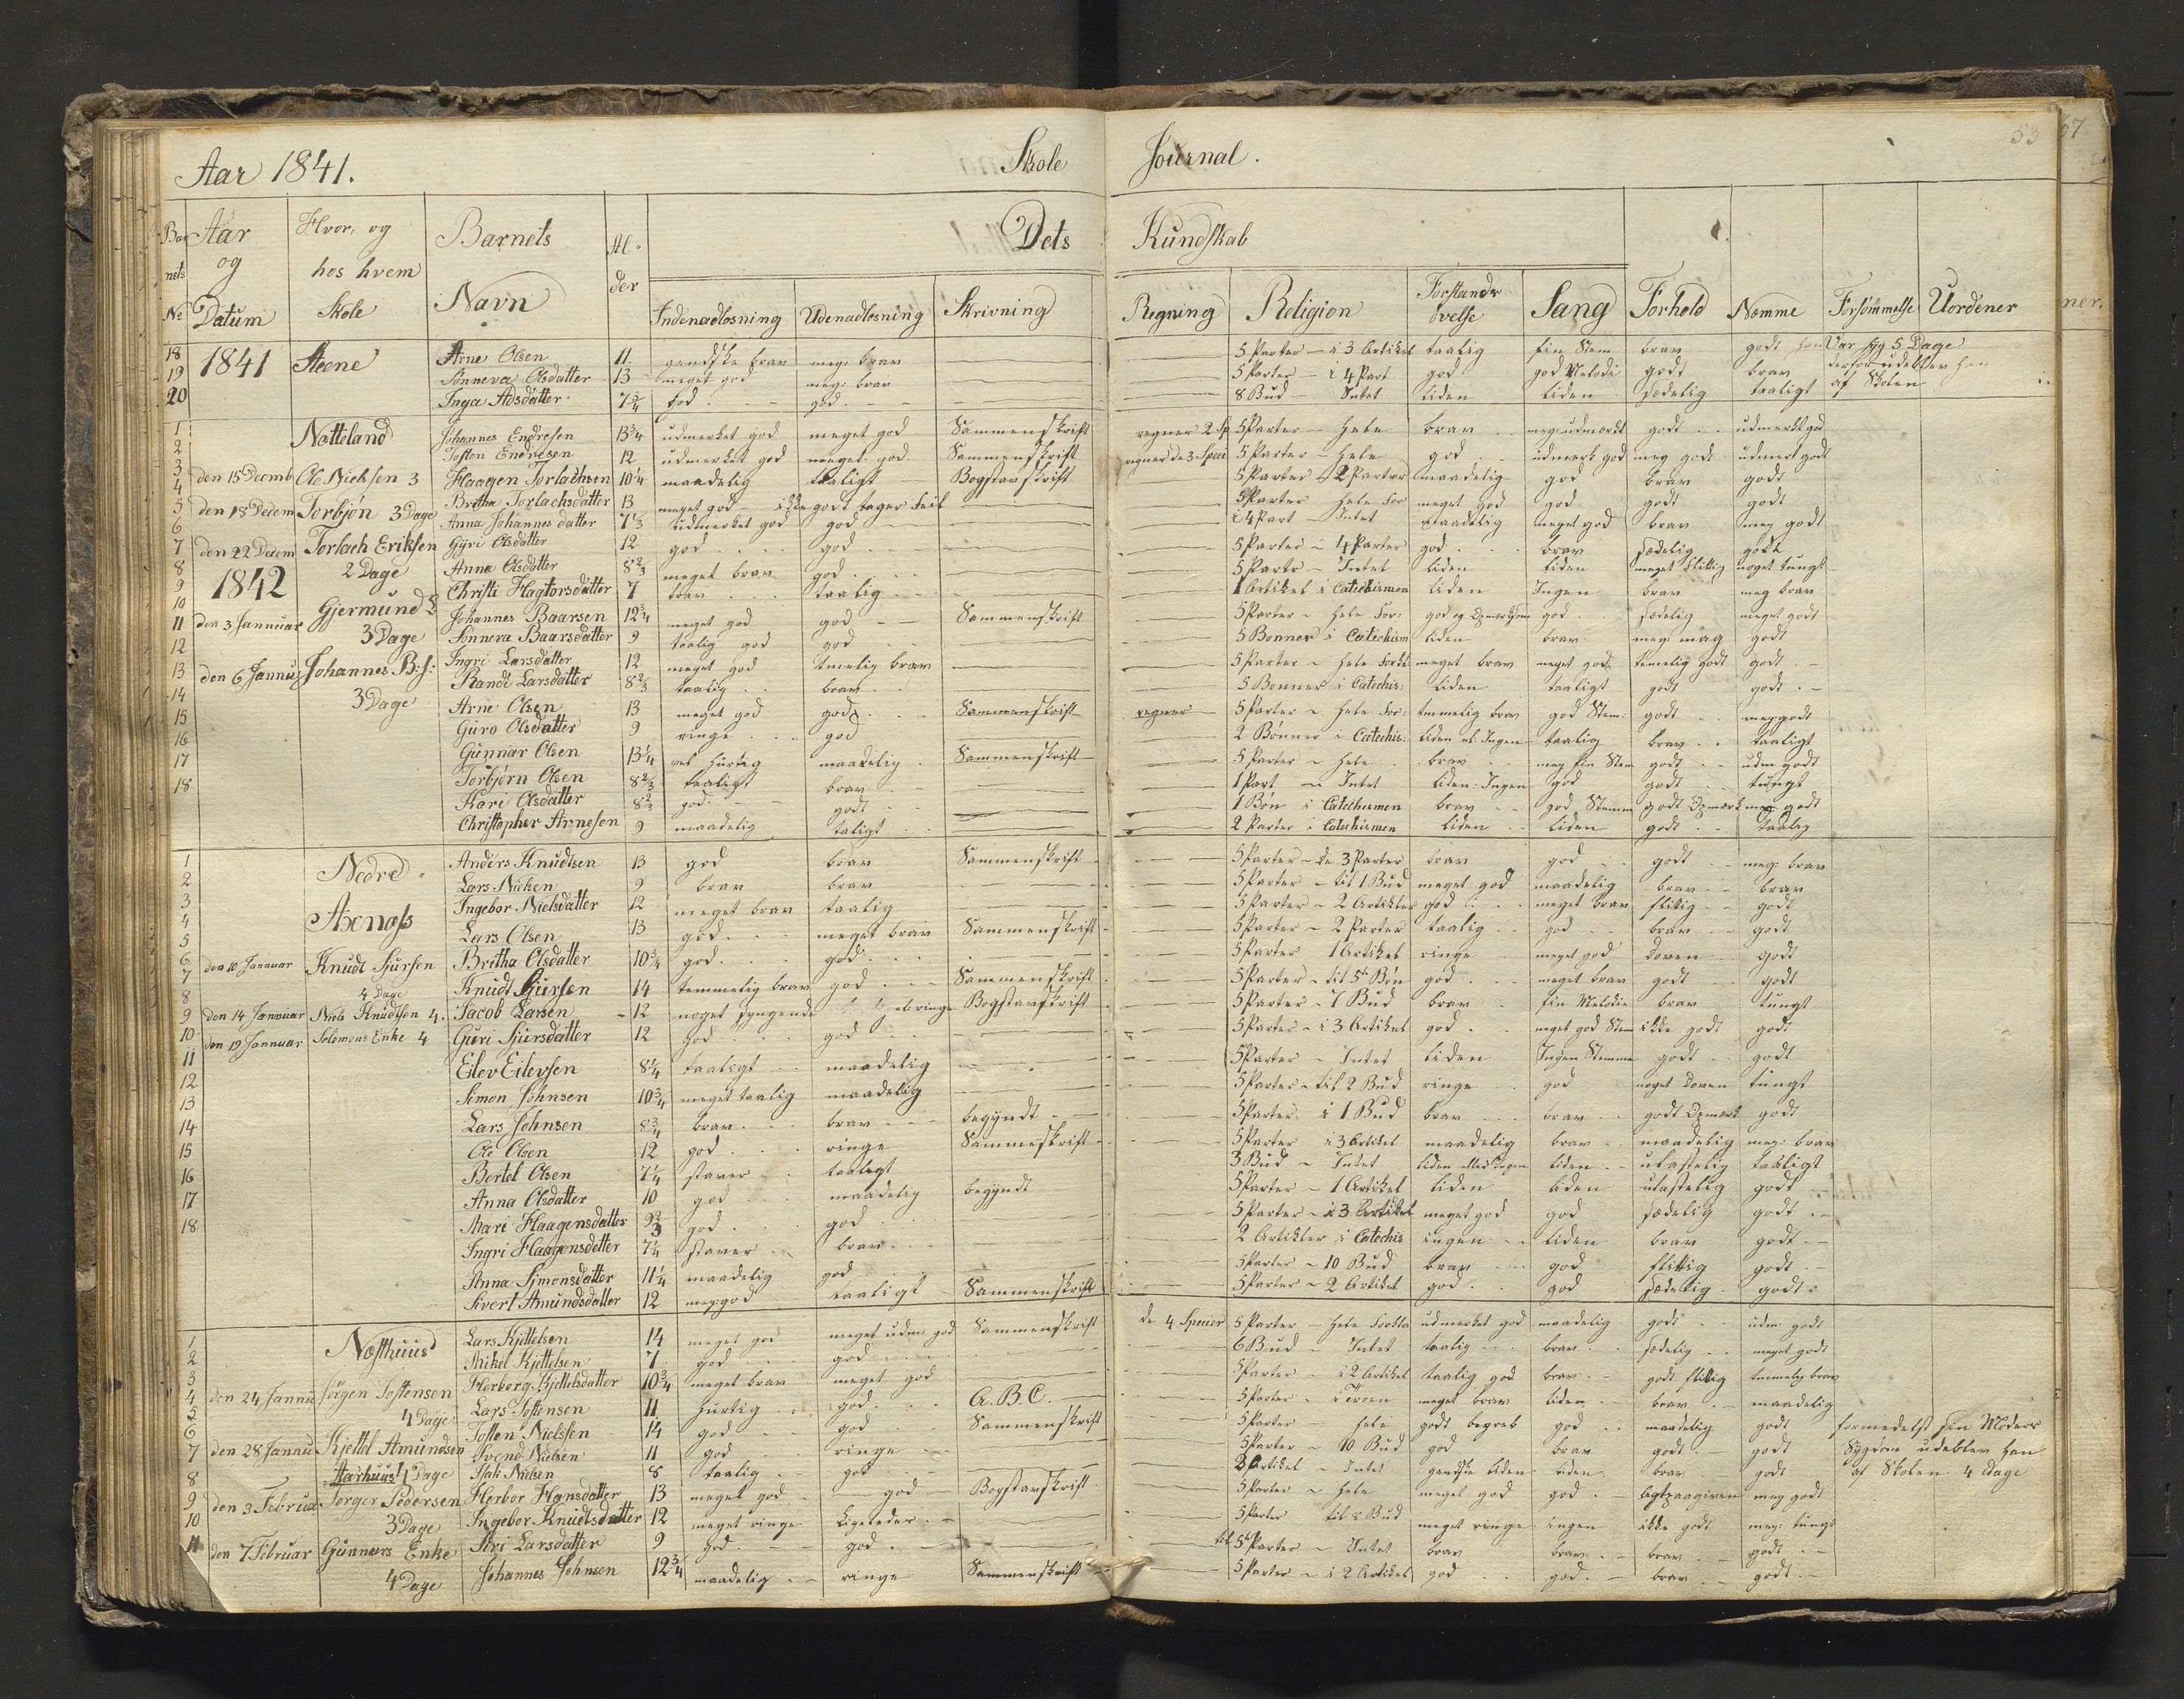 53 67
Aar 1841. Skole Journal.
Barnets No Aar og Datum Hvor, og hos hvem Skole Barnets Navn Alder Dets Kundskab
Indenadlæsning Udenadlæsning Skrivning Regning Religion Forstands øvelse Sang Forhold Nemme Forsømmelse Uordener
18 1841 Steene Arne Olsen 11. gandske brav meg: brav 5 Parter – i 3 Artikel taalig fin Stem brav godt han Var syg 5 Dage
19 Sønneva Olsdatter 13 meget god meg: brav 5 Parter – i 4 Part god god Melodi godt brav derfor udeblev han
20 Inga Adsdatter 7 3/4 god god 8 Bud – Intet liden liden sædelig taaligt af Skolen
1 Natteland Johannes Endresen 13 3/4 udmerket god meget god Sammenskrift regner 2 Sp 5 Parter – hele brav meg: udmærkt godt udmerkt god
2 Tosten Endresen 12 udmerket god meget god. Sammenskrift regner de 3 Speci 5 Parter – hele god udmerk god meg godt udmerk godt
3 den 15 Decemb Ole Nielsen 3 Haagen Torlachsen 10 1/4 maadelig taaligt Bogstavskrift 5 Parter – 2 Parter maadelig god brav godt
4 Britha Torlachsdatter 13 meget god godt tager feil 5 Parter hele For meget god god godt godt
5 den 18 Decem Torbjön 3 Dage Anna Johannes datter 7 1/3 udmerket god god i 4 Part – Intet maadelig meget god brav meg godt
6 Gÿri Olsdatter 12 god god 5 Parter – 4 Parter god brav sædelig godt
7 den 22 Decem Torlach Eriksen 2 Dage Anna Olsdatter 8 2/3 meget brav god 5 Parte – Intet liden liden meget flittig noget tungt
8 1842 Christi Hagtorsdatter 7 brav taalig 1 Artikel i Catechismen liden Ingen brav meg brav
9 Gjermund Johannes Baarsen 12 3/4 meget god god Sammenskrift 5 Parter – hele For: god god sædelig meget godt
10 den 3 Januuar 3 Dage Sønneva Baarsdatter 9 taalig god god 5 Bønner i Catechism liden brav meg: godt
11 Ingri Larsdatter 12 meget god tmelig brav 5 Parter – hele Forkl: meget brav meget god temelig godt godt
12 den 6 Jannu Johannes B:s: 3 Dage Randi Larsdatter 8 2/3 taalig brav 5 Bønner i Catechis. liden taaligt godt godt
13 Arne Olsen 13 meget god god Sammenskrift regner 5 Parter – hele For: temmelig brav god Stem: godt meg godt
14 Guro Olsdatter 9 ringe god 2 Bønner i Catechis: liden el: Ingen taalig brav taaligt
15 Gunnar Olsen 13 1/4 hurtig maadelig Sammenskrift 5 Parter – hele brav meg fin Stem godt udm godt
16 Torbjørn Olsen 8 2/3 taaligt brav 1 Part – Intet liden: Ingen god godt tungt
17 Kari Olsdatter 8 2/3 god godt 1 Bøn i Catechismen brav god Stemme godt meg godt
18 Christopher Arnesen 9 maadelig taligt 2 Parter i Catechismen liden liden godt taalig
1 Nedre Axenæss Anders Knudtsen 13 god brav Sammenskrift 5 Parter – de 3 Parter brav god godt meg: brav
2 Lars Nielsen 9 brav brav 5 Parter – til 1 Bud meget god maadelig brav brav
3 Ingebor Nielsdatter 12 meget brav taalig 5 Parter – 2 Artikler god meget brav flittig godt
4 Lars Olsen 13 god meget brav Sammenskrift 5 Parter – 2 Parter taalig god brav godt
5 den 10 Januuar Knudt Sjursen Britha Olsdatter 10 3/4 god god 5 Parter 1 Artikel ringe meget god doven godt
6 4 Dage Knudt Sjursen 14 temmelig brav god Sammenskrift 5 Parter – til 5te Bøn god meget brav godt godt
7 den 14 Januuar Niels Knudtsen 4. Jacob Larsen 12 noget syngende ringe Bogstavskrift 5 Parter – 7 Bud brav fin Melodie brav tungt
8 den 19 Januuar Solomons Enke 4 Guri Sjursdatter 12 god god 5 Parter – i 3 Artikel god meget god Stem ikke godt godt
9 Eilev Eilevsen 8 1/4 taaligt maadelig 5 Parter – Intet liden Ingen Stemme godt godt
10 Simon Johnsen 10 3/4 meget taalig maadelig 5 Parter – til 2 Bud ringe god noget doven tungt
11 Lars Johnsen 8 3/4 brav brav begyndt 5 Parter i 1 Bud brav brav godt godt
12 Ole Olsen 12 god ringe Sammeskrift 5 Parter i 3 Artikel maadelig brav maadelig meg: brav
13 Bertel Olsen 7 1/4 staver taaligt 3 Bud – Intet liden eller Ingen liden ulastelig taaligt
14 Anna Olsdatter 10 god maadelig begyndt 5 Parter – 1 Artikel liden liden ulastelig godt
15 Mari Haagensdatter 9 2/3 god god 5 Parter – i 3 Artikel meget god god sædelig godt
16 Ingri Haagensdatter 7 1/4 staver brav 2 Artikler i Catechis ingen liden brav godt
17 Anna Simonsdatter 11 1/4 maadelig god 5 Parter – 10 Bud brav god flittig godt
18 Sivert Amundsdatter 12 meg: god taaligt Sammenskrift 5 Parter – 2 Artikel god god sædelig godt
1 Næsthuus Lars Kjettelsen 14 meget god meget udm: god Sammenskrift de 4 Specier 5 Parter – hele Forkla udmerket god maadelig godt udm godt
2 Mikel Kjettelsen 7 god god 6 Bud – Intet taalig brav sædelig meget godt
3 Herborg Kjettelsdatter 10 3/4 meget brav meget god 5 Parter – i 2 Artikel taalig god brav godt flittig temmelig brav
4 den 24 Jannu Jörgen Tostensen 4 Dage Lars Tostensen 11 hurtig god A.B.C. 5 Parter – i Troen meget brav liden brav maadelig
5 Tosten Nielssen 14 god god Sammenskrift 5 Parter – hele godt begreb god maadelig godt formedelst sin Moders
6 den 28 Jannu Kjettel Amundsen Svend Nielsen 11 god ringe 5 Parter – 10 Bud god brav godt godt Sygdom udeblev han
7 Aarhuus 4 Dage Isak Nielsen 8 taalig god 3 Artikel – Intet gandske liden liden brav godt af Skolen 4 Dage
8 den 3 Februar Torger Pedersen Herbor Hansdatter 13 meget god god Bogstavskrift 5 Parter – hele meget god god meg godt
9 3 Dage Ingebor Knudtsdatter 12 meget ringe Ligeledes 5 Parter til 2 Bud meget ringe ingen ikke godt meg: tungt
10 den 7 Februar Gunners Enke Siri Larsdatter 9 god god til 5te Parter – Intet brav brav brav godt
11 4 Dage Johannes Johnsen 12 3/4 maadelig ringe Sammenskrift 5 Parter – i 2 Artikel god god brav godt